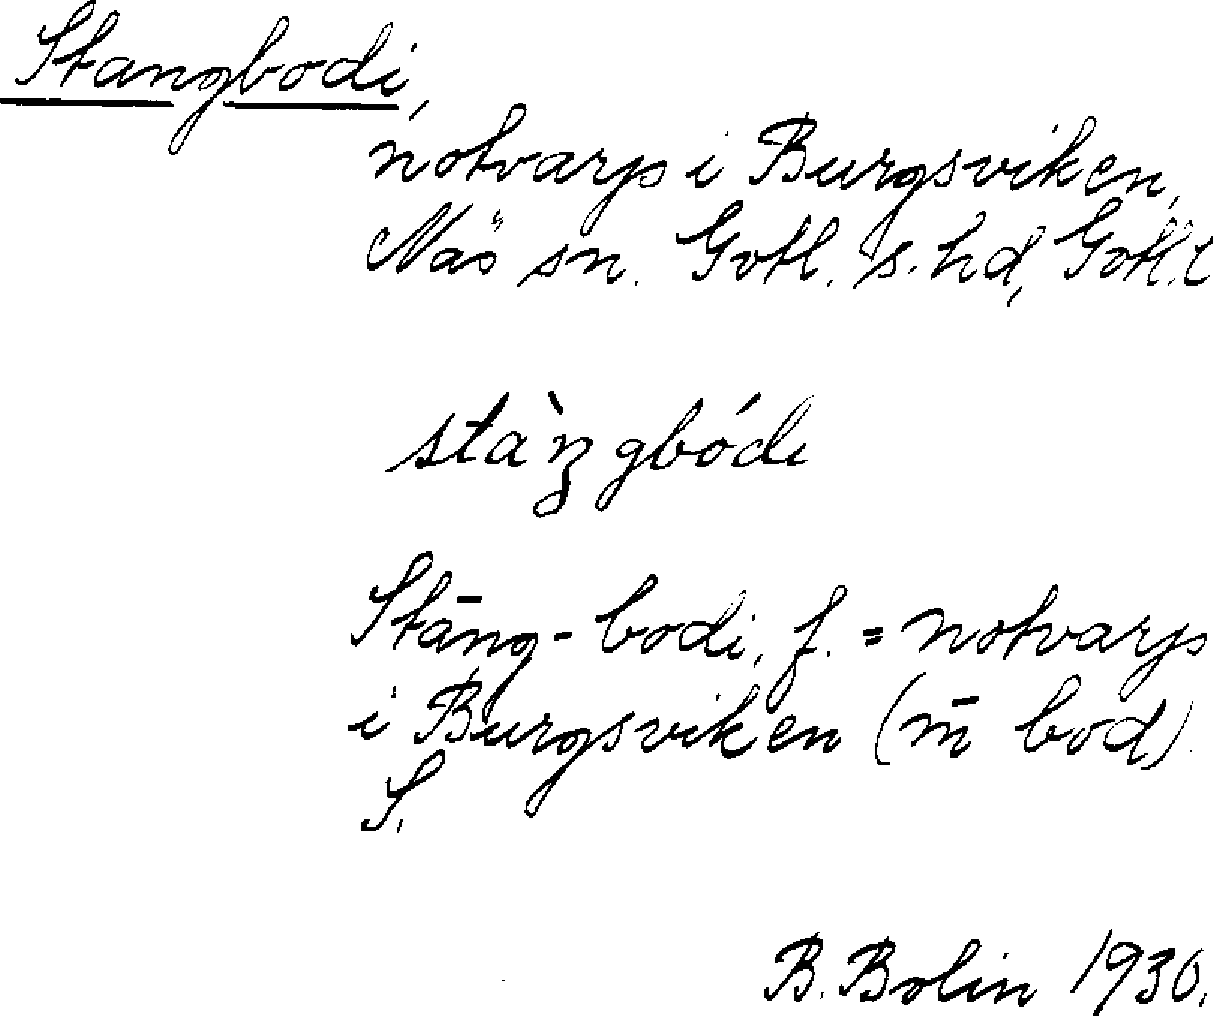 Stangbodi,
notvarp i Burgsviken,
Näs sn. Gotl. s. hd, Gotl. l
stàŋgbódi
Stāng-bodi, f. = notvarp
i Burgsviken (m̄ bod).
S.
B. Bolin 1930.